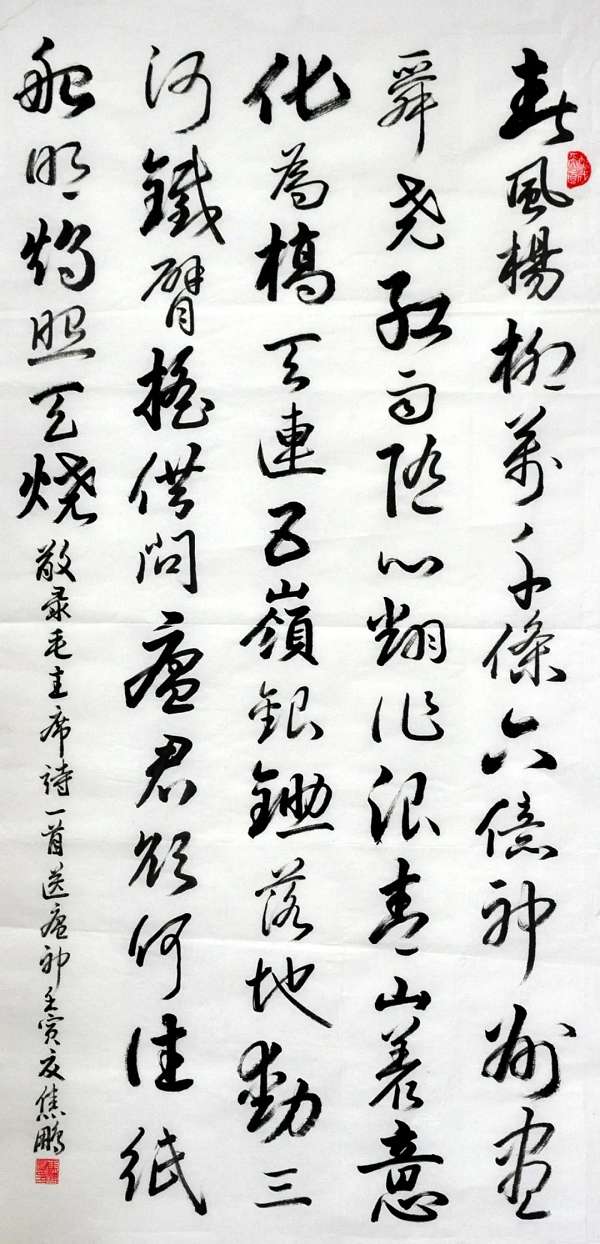 春風楊柳萬千條六億神州盡
舜堯紅雨隨心翻作浪青山着意
化為橋天連五嶺銀鋤落地動三
河鐵臂搖借問瘟君欲何往紙
船明燭照天燒
敬录毛主席詩一首送瘟神壬寅夏焦鵬